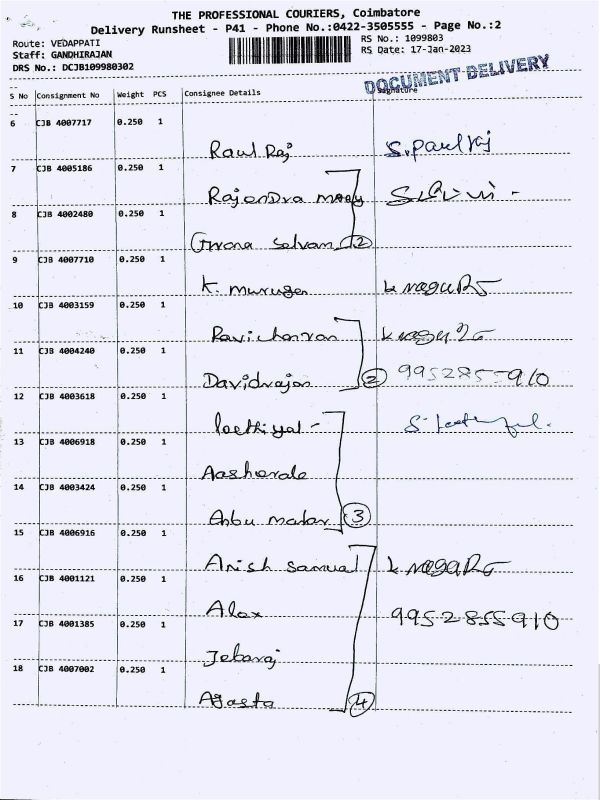 THE PROFESSIONAL COURIERS, Coimbatore
Delivery Runsheet - P41 - Phone No.:0422-3505555 - Page No.:2
Route: VEDAPPATI
RS No.: 1099803
Staff: GANDHIRAJAN
RS Date: 17-Jan-2023
DRS No.: DCJB109980302
DOCUMENT DELIVERY
S No Consignment No Weight PCS Consignee Details Signature
6 CJB 4007717 0.250 1
Raul Raj S. paul raj
7 CJB 4005186 0.250 1
Rajendra
8 CJB 4002480 0.250 1
Gnana Selvan 2
9 CJB 4007710 0.250 1
K. Murugan
10 CJB 4003159 0.250 1
Ravichandran
11 CJB 4004240 0.250 1
Davidrajan 2 9952855910
12 CJB 4003618 0.250 1
13 CJB 4006918 0.250 1
14 CJB 4003424 0.250 1
3
15 CJB 4006916 0.250 1
Anish Samual
16 CJB 4001121 0.250 1
Alex 9952855910
17 CJB 4001385 0.250 1
Jebaraj
18 CJB 4007002 0.250 1
Agasta 4